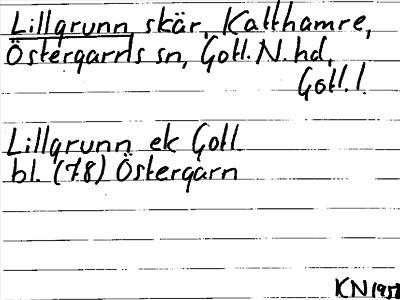 Lillgrunn, skär, Katthamre,
Östergarns sn, Gotl. N. hd,
Gotl. l.
Lillgrunn ek Gotl.
bl. (78) Östergarn
KN 1951